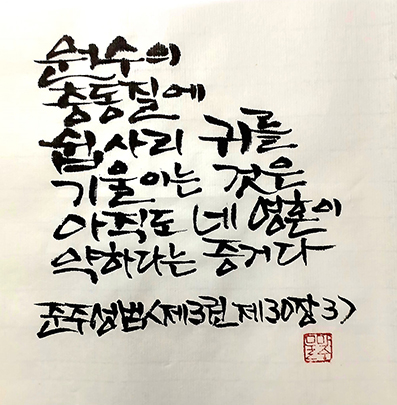 원수의
충동질에
쉽사리 귀를
기울이는 것은
아직도 네 영혼이
약하다는 증거다
준주성범<제3권 제30장 3>